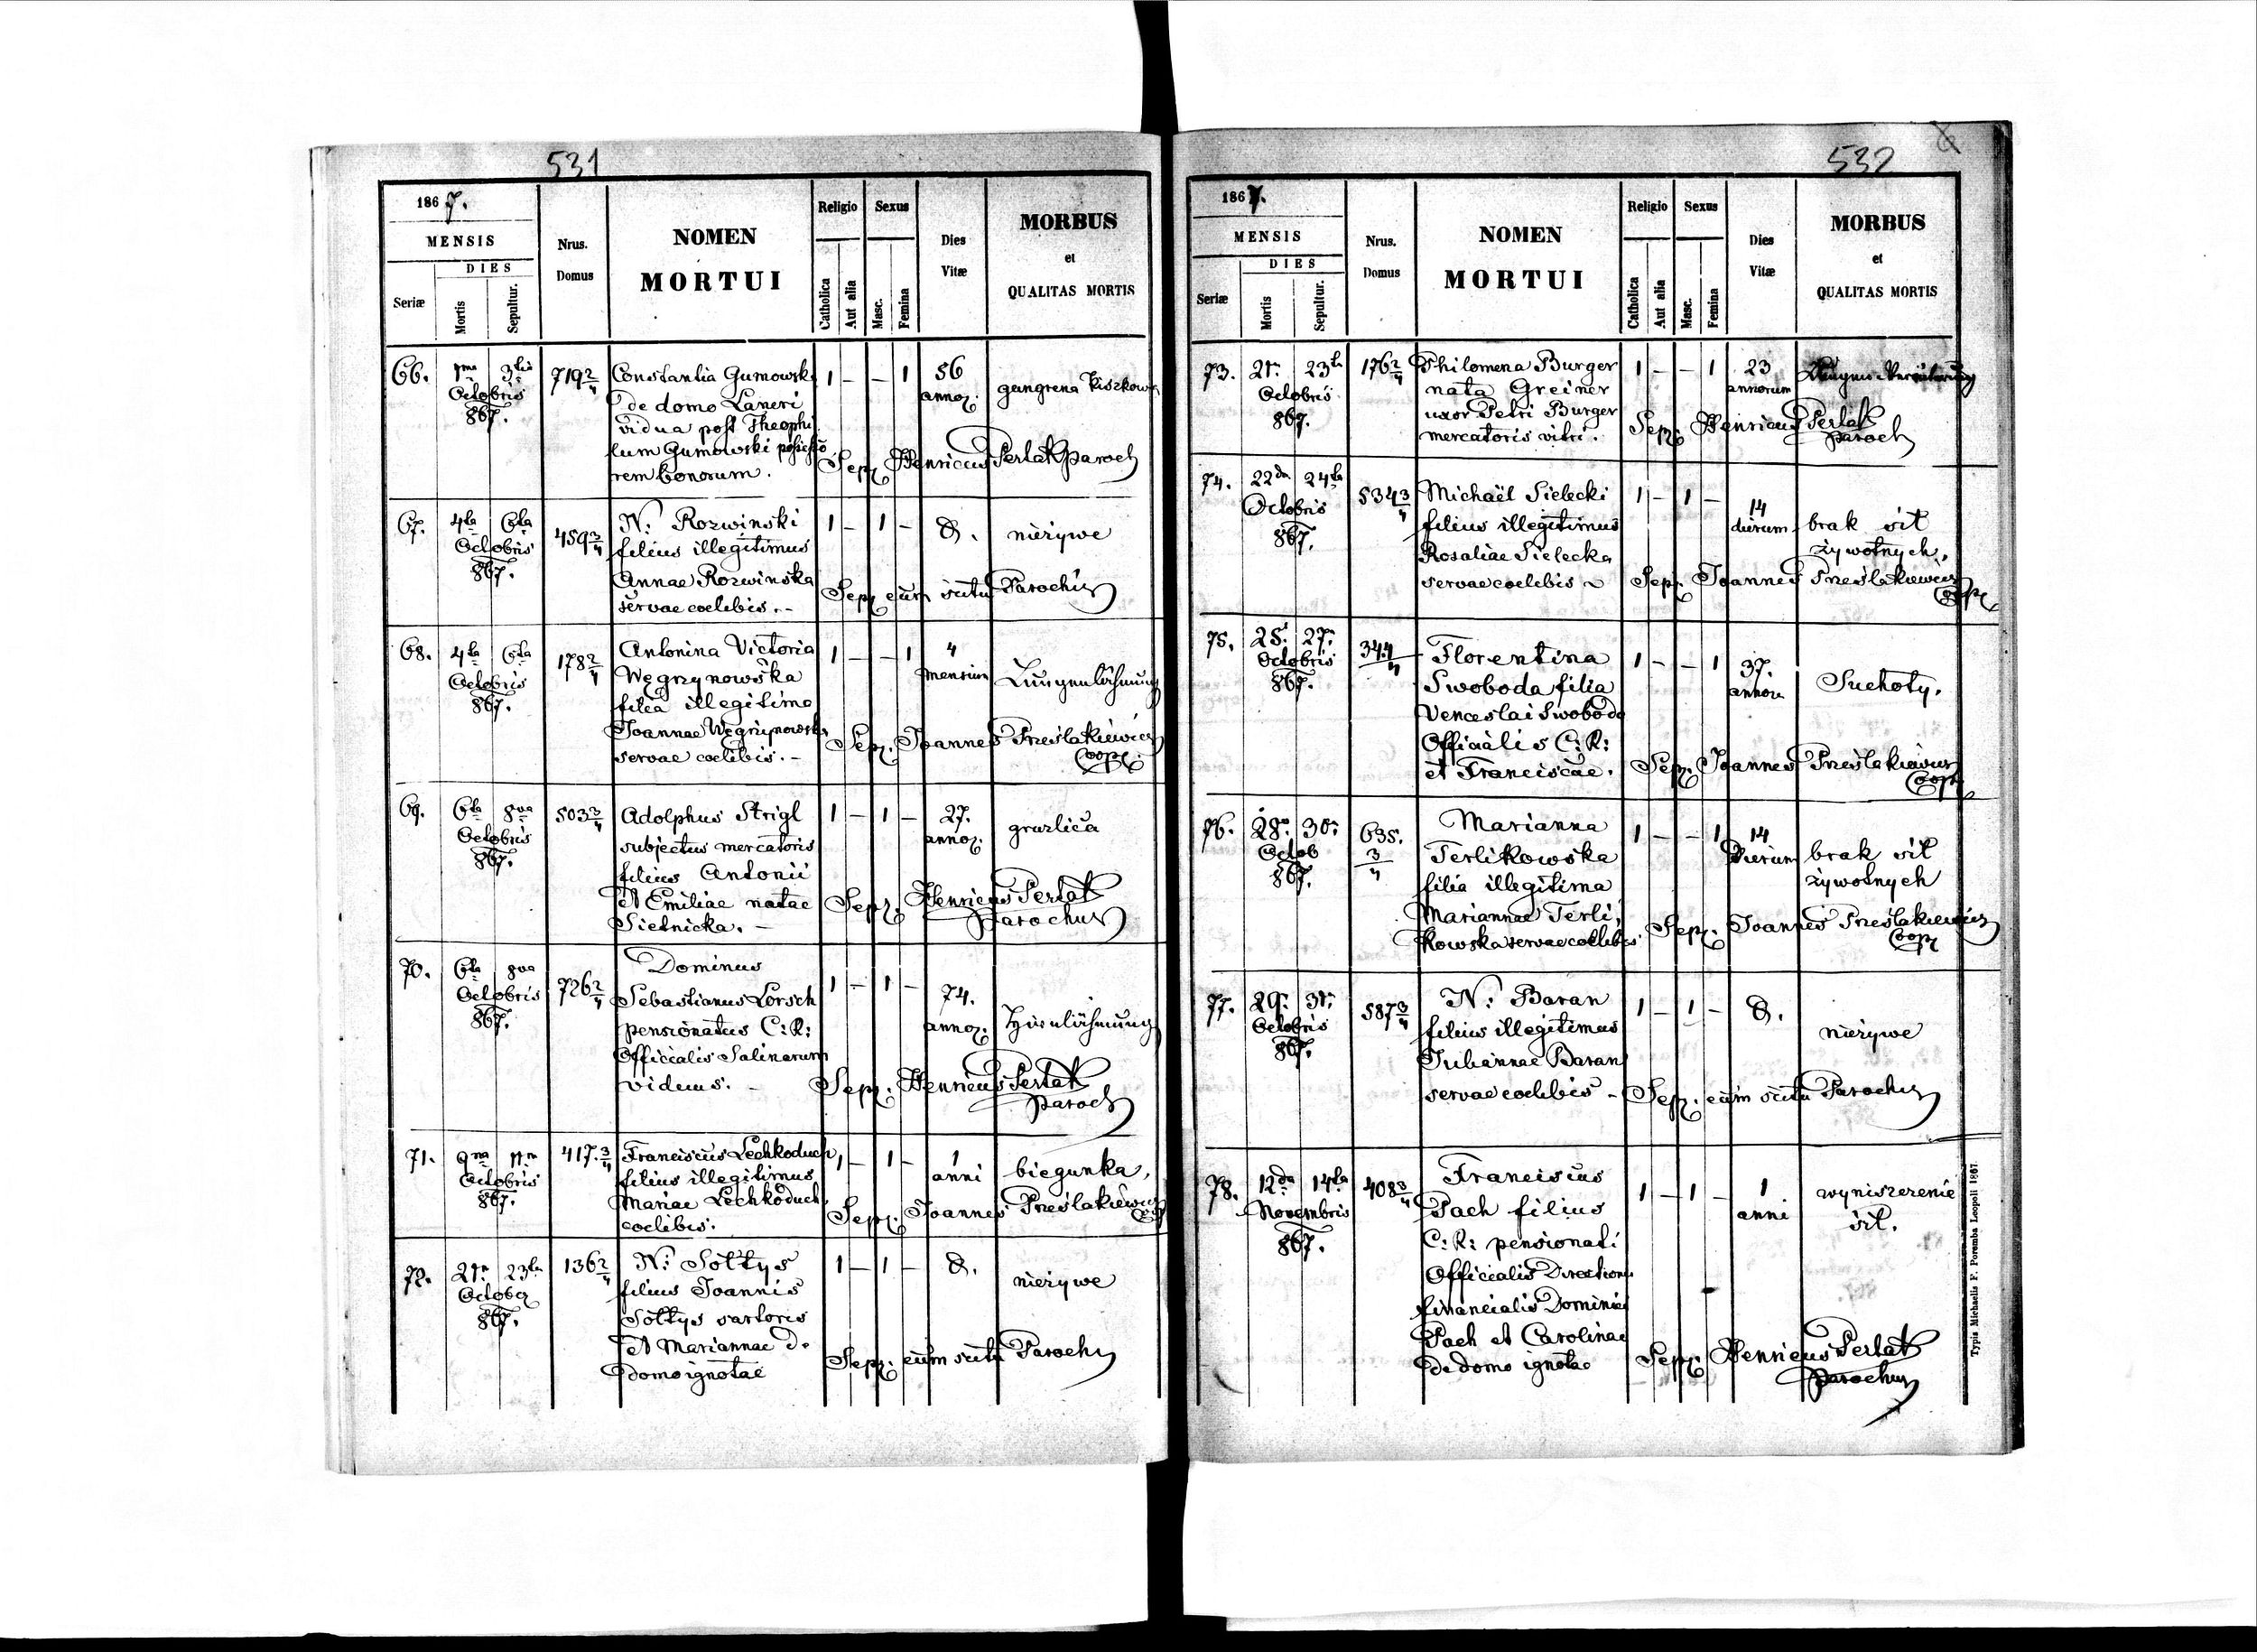 531
1867.
MENSIS
DIES
Seriæ
Mortis
Sepultur.
Nrus.
Domus
NOMEN
MORTUI
Religio
Catholica
Aut alia
Sexus
Masc.
Femina
Dies
Vitæ
MORBUS
et
QUALITAS MORTIS
66. 1ma 3tia 719 2/4 Constantia Gumowska 1 – – 1 56
Octobris de domo Laneri annor. gangrena Kiszkowa
867. vidua post Theophi
lum Gumowski
rem bonorum. Sep. Henricus Perlak paroch
67. 4ta 6ta 459 3/4 N: Rozwinski 1 – 1 – nieżywe
Octobris filius illegitimus
867. Annae Rozwinska
servae coelibis. – Sep. cum scitu Parochus
68. 4ta 6ta 178 2/4 Antonina Victoria 1 – – 1 4
Octobris Węgrzynowska mensium Lungenlähmung
867. filia illegitima
Joannae Węgrzynowska
servae coelibis. – Sep. Joannes Prześlakiewicz
Coop.
69. 6ta 8va 503 3/4 Adolphus Strigl 1 – 1 – 27. gruzlica
Octobris subjectus mercatoris annor.
867. filius Antonii
et Emiliae natae Sep. Henricus Perlak
Sielnicka. – Parochus
70. 6ta 8va 726 2/4 Dominus 1 – 1 – 74.
Octobris Sebastianus Lorsch annor. Hirnlähmung
867. pensionatus C: R:
Officialis Salinarum
viduus. – Sep. Henricus Perlak
paroch
71. 9na 11ma 417. 3/4 Franciscus Lechkoduch 1 – 1 – 1 biegunka.
Octobris filius illegitimus anni
867. Mariae Lechkoduch
coelibis. Sep. Joannes Prześlakiewicz
72. 21a 23tia 136 2/4 N: Sołtys 1 – 1 – nieżywe
October filius Joannis
867. Sołtys sartoris
et Mariannae de
domo ignotae Sep. cum scitu Parochi
532
1867.
MENSIS
DIES
Seriæ
Mortis
Sepultur.
Nrus.
Domus
NOMEN
MORTUI
Religio
Catholica
Aut alia
Sexus
Masc.
Femina
Dies
Vitæ
MORBUS
et
QUALITAS MORTIS
73. 21a 23tia 176 2/4 Philomena Burger 1 – – 1 23
Octobris nata Greiner annorum
867. uxor Petri Burger
mercatoris vitri. Sep. Henricus Perlak
paroch
74. 22da 24ta 534 3/4 Michaël Sielecki 1 – 1 – 14
Octobris filius illegitimus dierum brak sił
867. Rosaliae Sielecka żywotnych.
servae coelibis Sep. Joannes Prześlakiewicz
Coop.
75. 25. 27. 344/4 Florentina 1 – – 1 37. Suchoty.
Octobris Swoboda filia annor.
867. Venceslai Swoboda
Officialis C: R:
et Franciscae. Sep. Joannes Prześlakiewicz
Coop.
76. 28. 30. 635. 3/4 Marianna 1 – – 1 14
Octob Terlikowska dierum brak sił
867. filia illegitima żywotnych
Mariannae Terli,
kowska servae coelibis Sep. Joannes Prześlakiewicz
Coop.
77. 29. 31. 587 3/4 N: Baran 1 – 1 – nieżywe
Octobris filius illegitimus
867. Juliannae Baran
servae coelibis – Sep. cum scitu Parochi
78. 12da 14ta 408 3/4 Franciscus 1 – 1 – 1 wyniszczenie
Novembris Pach filius anni sił.
867. C: R: pensionati
Officialis Directionis
financialis Dominici
Pach et Carolinae
de domo ignotae Sep. Henricus Perlak
parochus
Typis Michaelis F. Poremba Leopoli 1867.